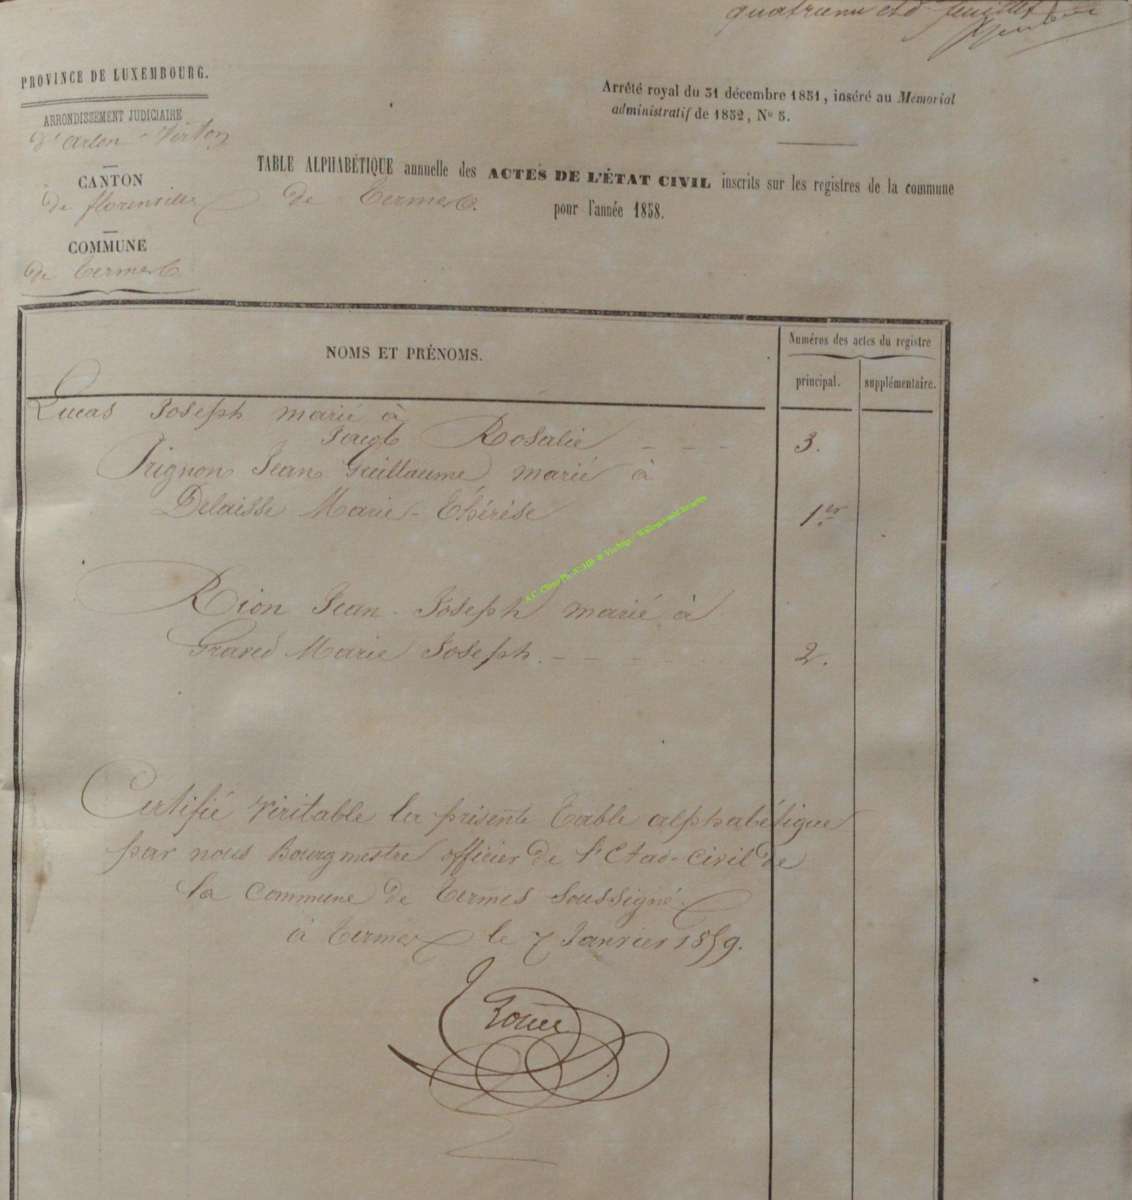 quatrième et d. feuillet
PROVINCE DE LUXEMBOURG.
ARRONDISSEMENT JUDICIAIRE
d'arlon - Virton
CANTON
de florenville
COMMUNE
de Termes
Arrêté royal du 31 décembre 1851, inséré au Memorial
administratif de 1852, No 5.
TABLE ALPHABÉTIQUE annuelle des ACTES DE L'ÉTAT CIVIL inscrits sur les registres de la commune
de Termes. pour l'année 1858.
NOMS ET PRÉNOMS.
Numéros des actes du registre
principal. supplémentaire.
Lucas Joseph marié à
Rosalie - - - 3.
Prignon Jean Guillaume marié à
Delaisse Marie-Thérèse 1er
Rion Jean-Joseph marié à
Grand Marie Joseph. - - - - 2.
Certifié véritable la présente Table alphabétique
par nous Bourgmestre officier de l'Etat-civil de
la commune de Termes soussigné.
à Termes le 7 Janvier 1859.